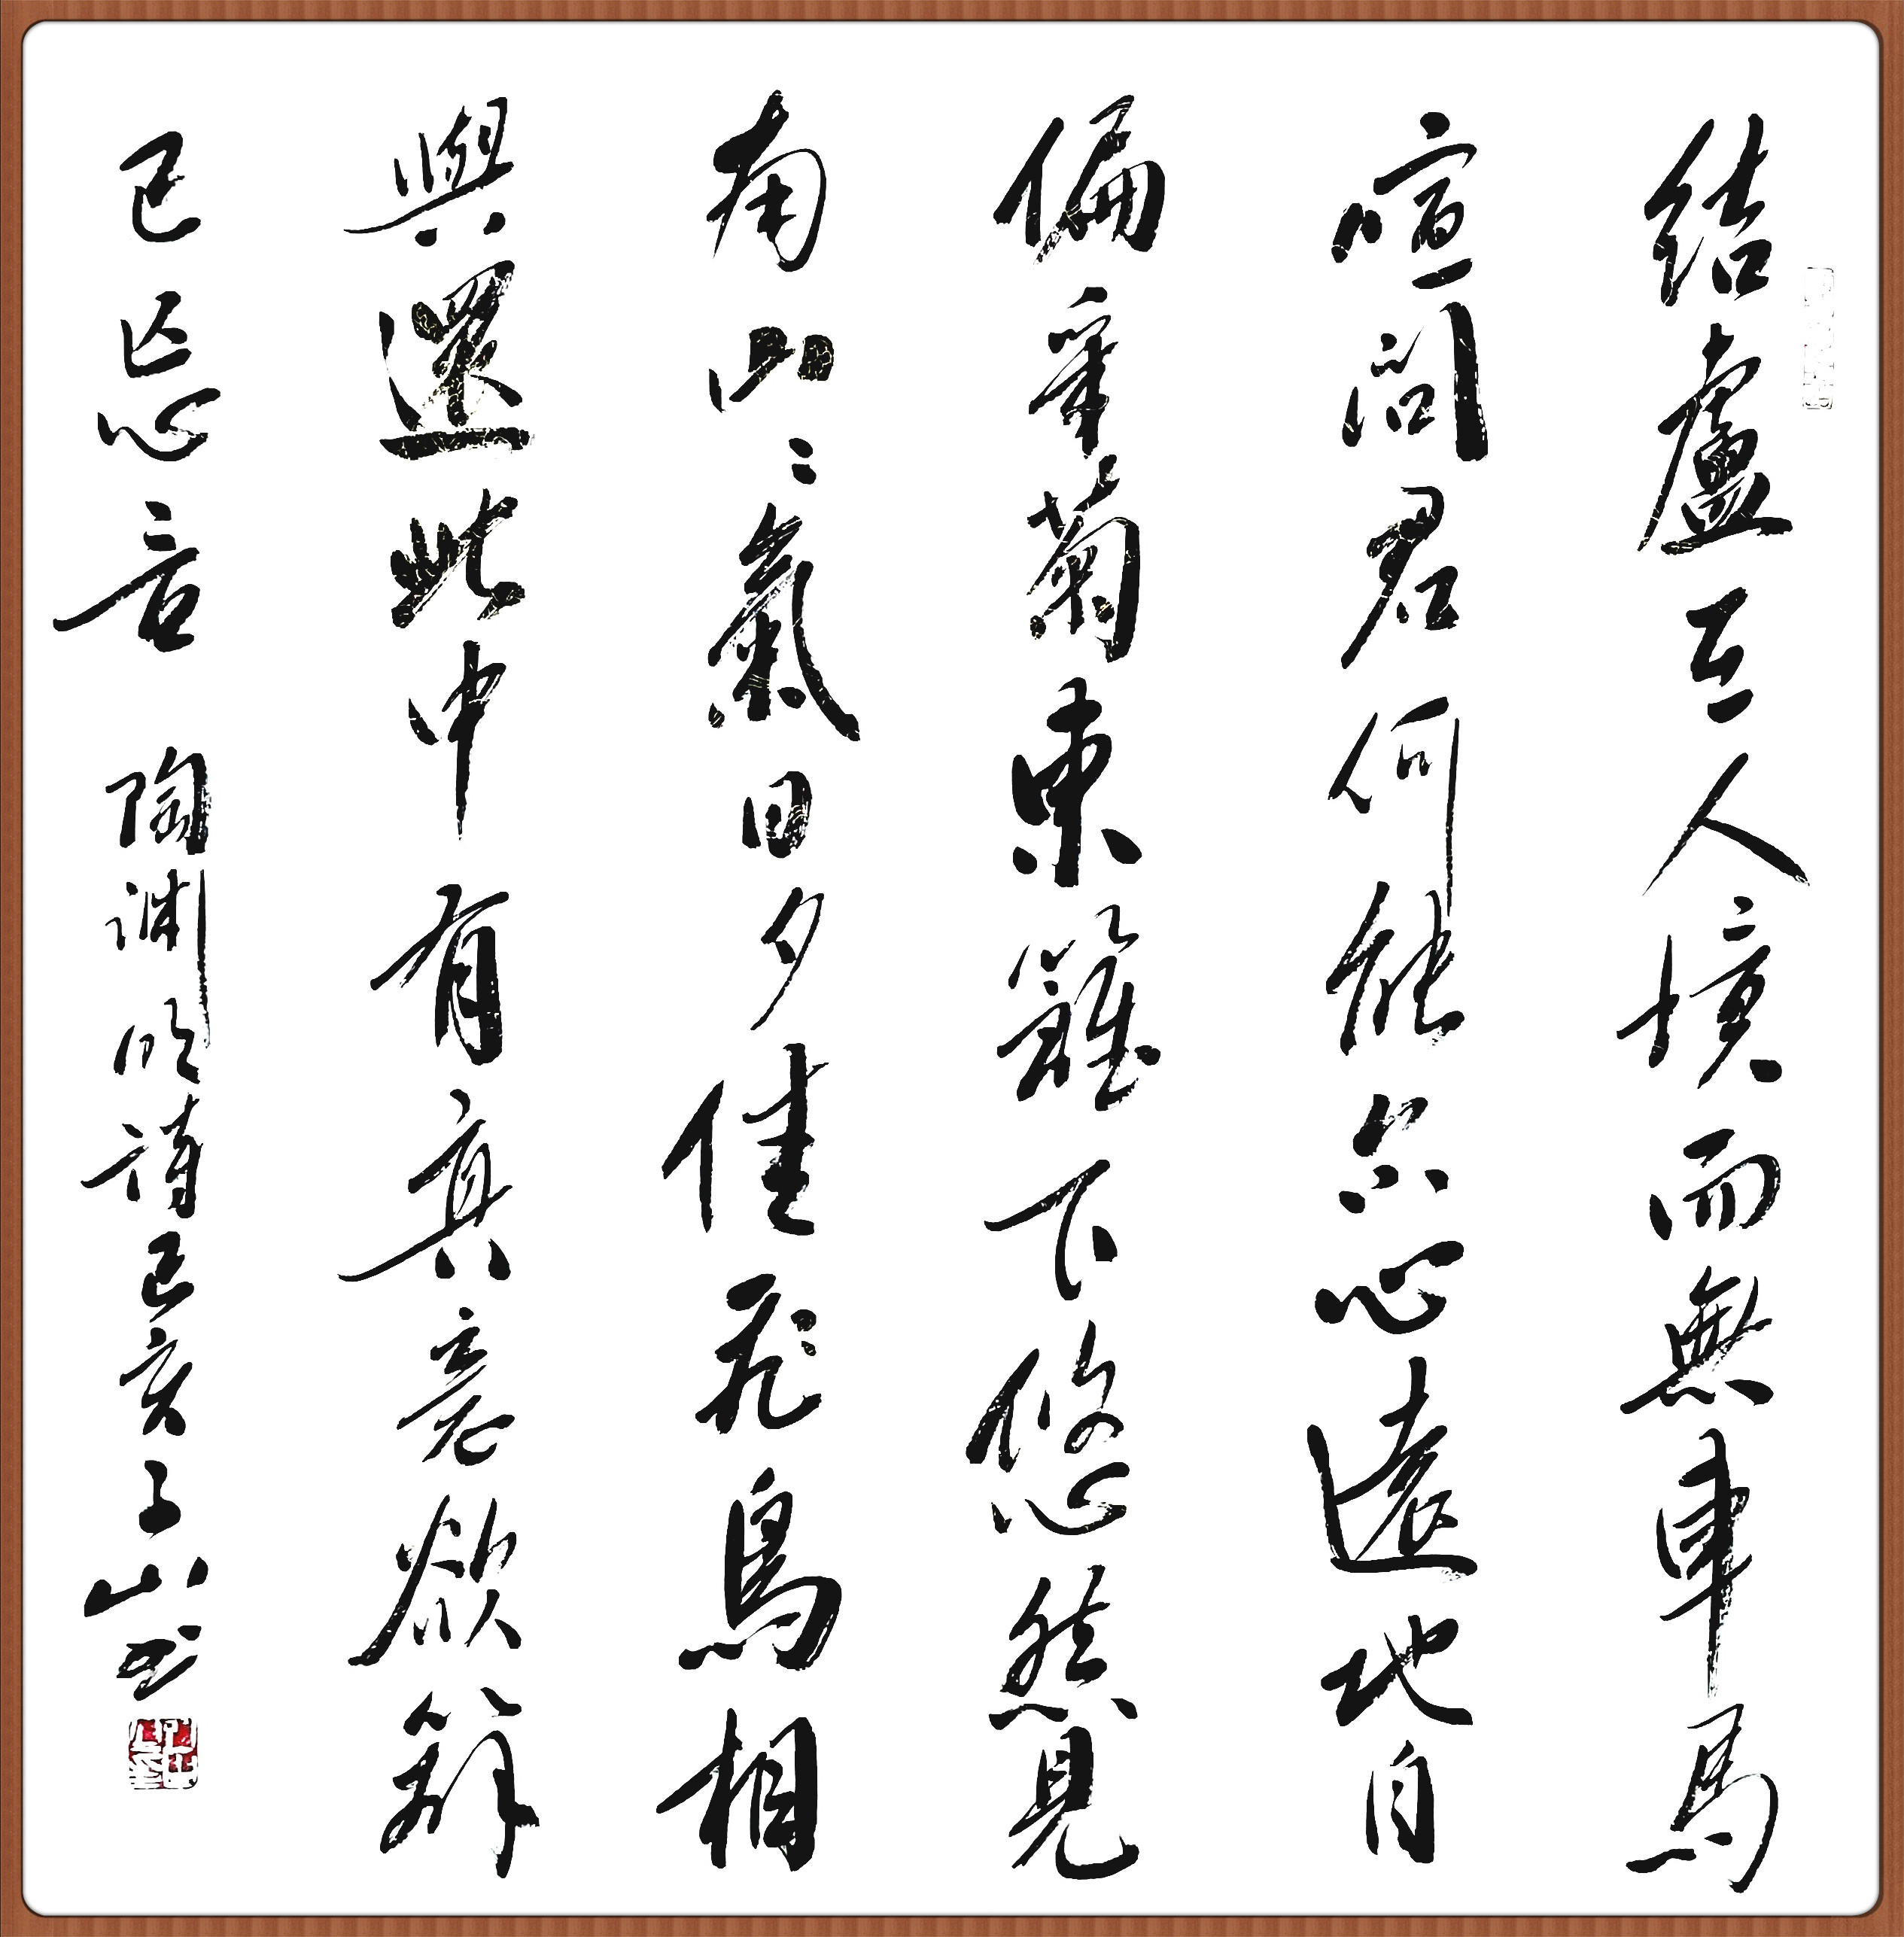 結廬在人境而無車馬
喧問君何能尔心遠地自
偏采菊東籬下悠然見
南山山氣日夕佳飛鳥相
與還此中有真意欲辯
已忘言 陶淵明詩己亥子山书